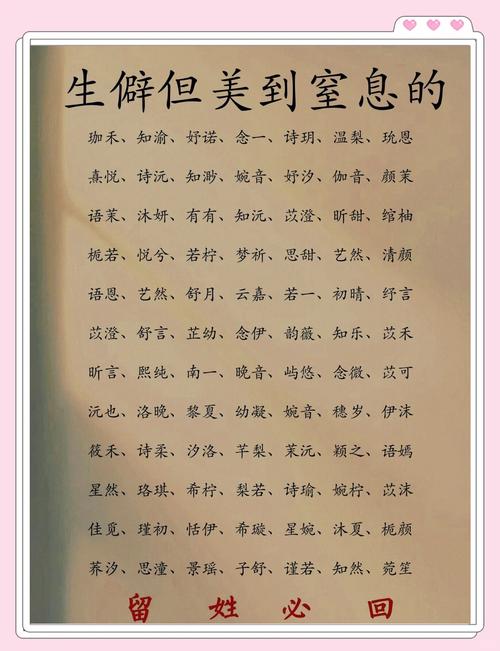 生僻但美到窒息的
珈禾、知渝、妤诺、念一、诗玥、温梨、琉恩
熹悦、诗沅、知渺、婉音、妤汐、伽音、颜茉
语茉、沐妍、有有、知沅、苡澄、昕甜、绾柚
栀若、悦兮、若柠、梦祈、思甜、艺然、清颜
语恩、艺然、舒月、云嘉、若一、初晴、纾言
苡澄、舒言、芷幼、念伊、韵薇、知乐、苡禾
昕言、熙纯、南一、晚音、屿悠、念微、苡可
沅也、洛晚、黎夏、幼凝、婉音、穗岁、伊沫
筱禾、诗柔、汐洛、芊梨、茉沅、颖之、语嫣
星然、珞琪、希柠、梨若、诗瑜、婉柠、苡沫
佳觅、瑾初、恬伊、希璇、星婉、沐夏、栀颜
荞汐、思潼、景瑶、子舒、谨若、知然、菀笙
留姓必回